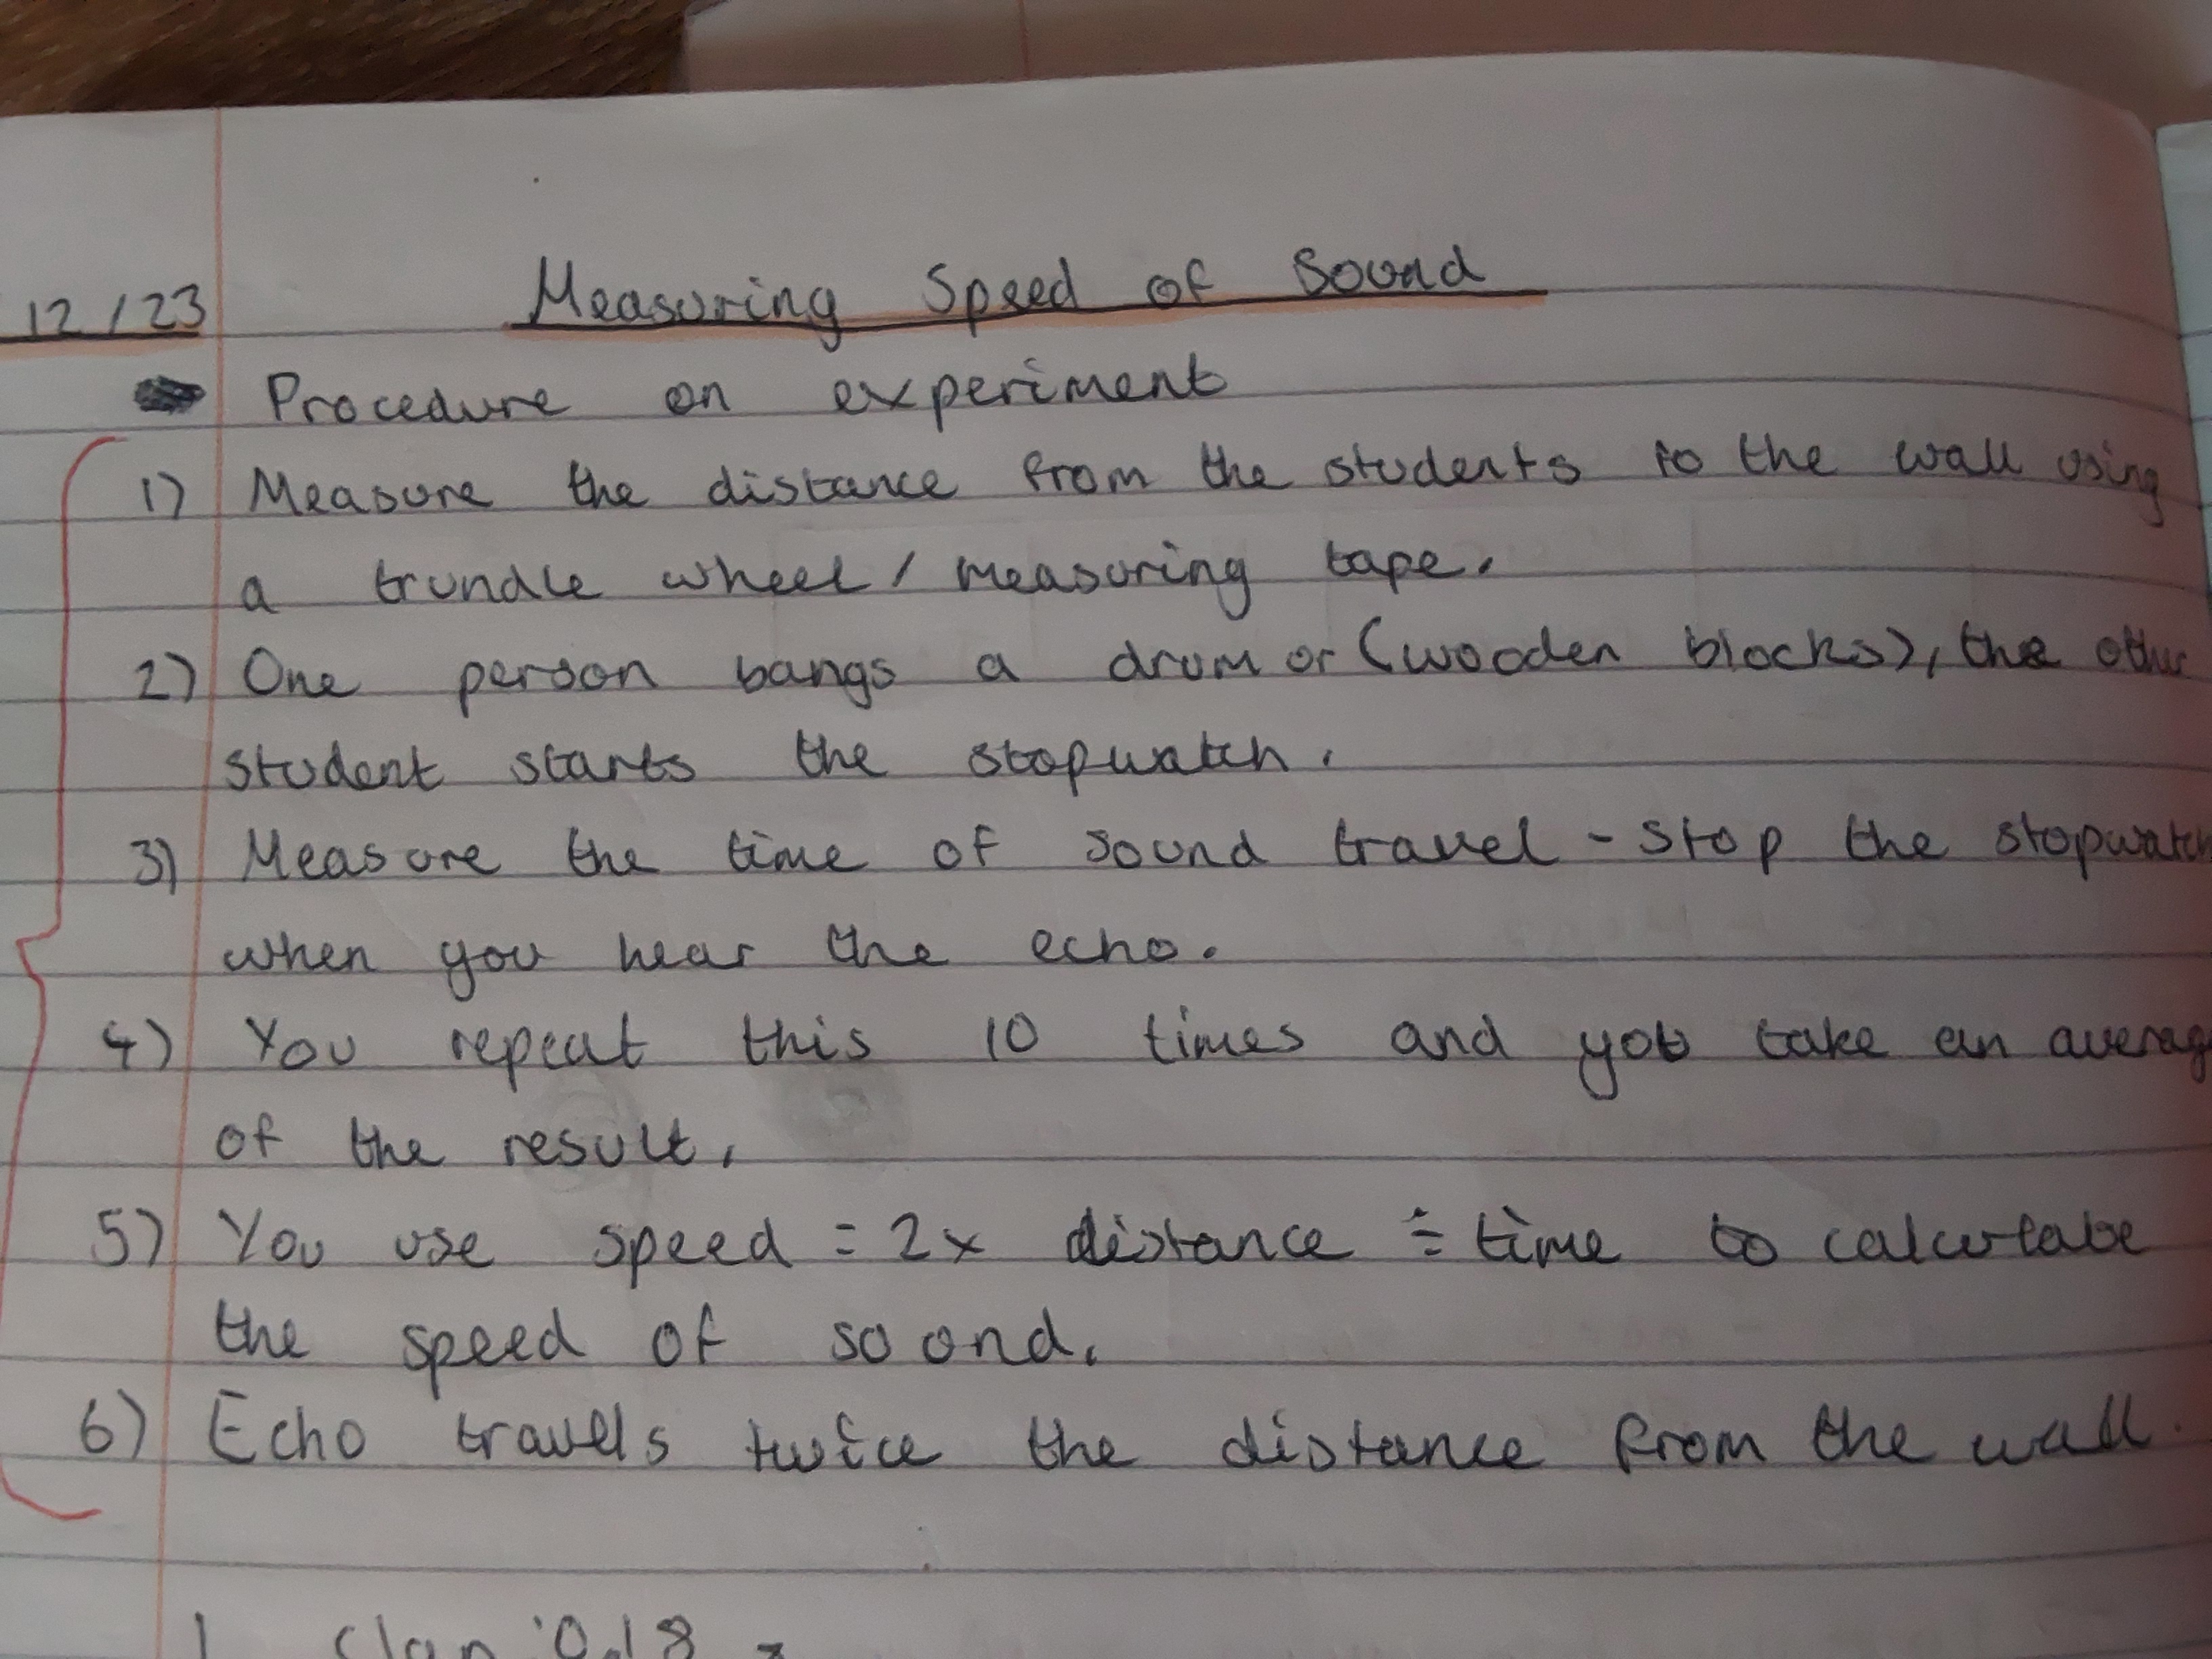 12/23 Measuring Speed of Sound
Procedure on experiment
1) Measure the distance from the students to the wall using
a trundle wheel / measuring tape.
2) One person bangs a drum or (wooden blocks), the other
student starts the stopwatch.
3) Measure the time of sound travel - stop the stopwatch
when you hear the echo.
4) You repeat this 10 times and you take an averag
of the result.
5) You use speed = 2x distance ÷ time to calculate
the speed of sound.
6) Echo travells twice the distance from the wall.
1 clap 0.18